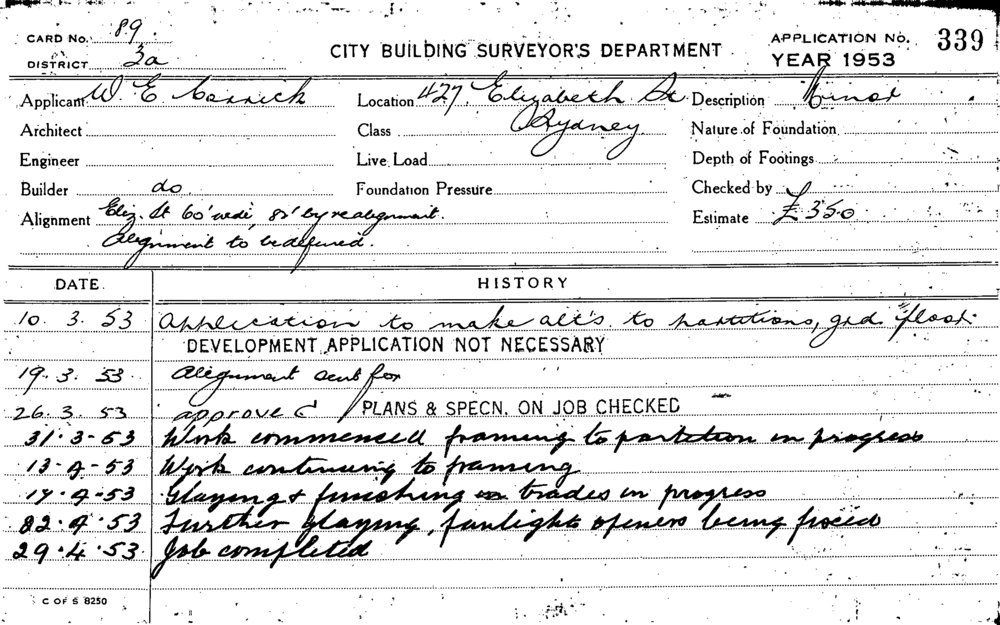 CARD No. 89.
DISTRICT 3a
CITY BUILDING SURVEYOR'S DEPARTMENT
APPLICATION No. 339
YEAR 1953
Applicant W. E. Carrick
Location 427, Elizabeth St
Description Minor
Architect
Class Sydney
Nature of Foundation
Engineer
Live Load
Depth of Footings
Builder do
Foundation Pressure
Checked by
Alignment Eliz. St 60' wide 82' by realignment.
Estimate £350
Alignment to be defined.
DATE HISTORY
10. 3. 53 Application to make alt's to partitions, grd. floor.
DEVELOPMENT APPLICATION NOT NECESSARY
19. 3. 53 Alignment sent for
26. 3. 53 approved PLANS & SPECN. ON JOB CHECKED
31. 3-53 Work commenced framing to partition in progress
13-4-53 Work continuing to framing
17.4-53 Glazing & finishing trades in progress
.4.53 Further glazing, fanlight openers being fixed
29.4.53 Job completed
C OF S 8250